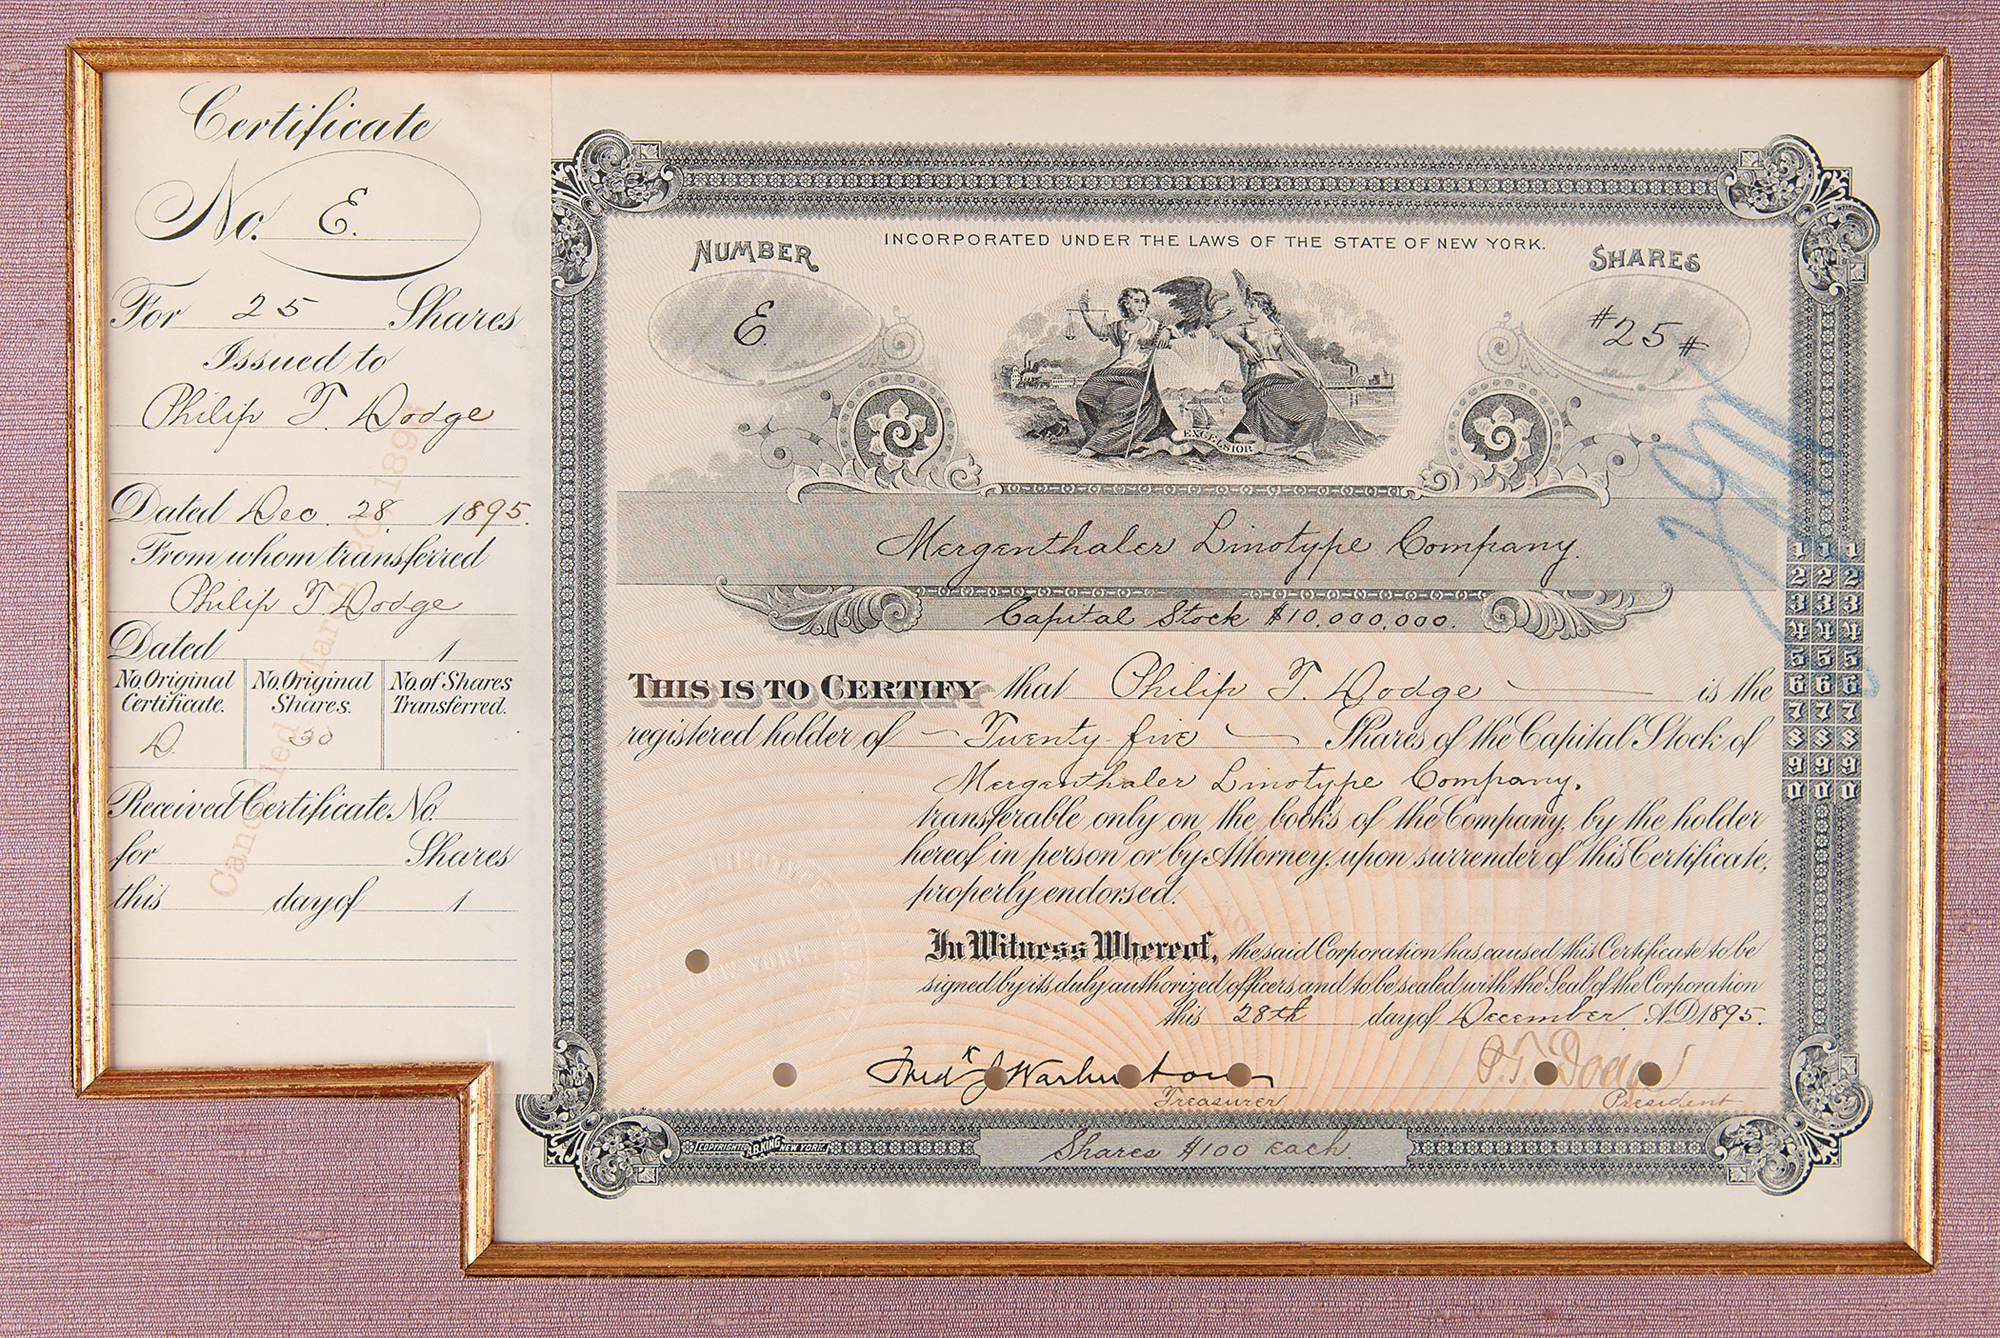 Certificate
No. E.
For 25 Shares
Issued to
Philip T. Dodge
Dated Dec. 28, 1895.
From whom transferred
Philip T Dodge
Dated 1
No. Original Certificate.
No. Original Shares.
No. of Shares Transferred.
D.
30
Received Certificate No.
for Shares
this day of 1
Cancelled March
NUMBER
E
INCORPORATED UNDER THE LAWS OF THE STATE OF NEW YORK.
SHARES
#25#
EXCELSIOR
Mergenthaler Linotype Company.
Capital Stock $10,000,000.
THIS IS TO CERTIFY that Philip T. Dodge is the
registered holder of Twenty-five Shares of the Capital Stock of
Mergenthaler Linotype Company.
transferable only on the books of the Company, by the holder
hereof in person or by Attorney, upon surrender of this Certificate,
properly endorsed.
In Witness Whereof, the said Corporation has caused this Certificate to be
signed by its duly authorized officers, and to be sealed with the Seal of the Corporation
this 28th day of December A.D. 1895.
Fred'k J Warburton
Treasurer
P. T. Dodge
President
Shares $100 each.
COPYRIGHTED A.B. KING NEW YORK.
1 1 1
2 2 2
3 3 3
4 4 4
5 5 5
6 6 6
7 7 7
8 8 8
9 9 9
0 0 0